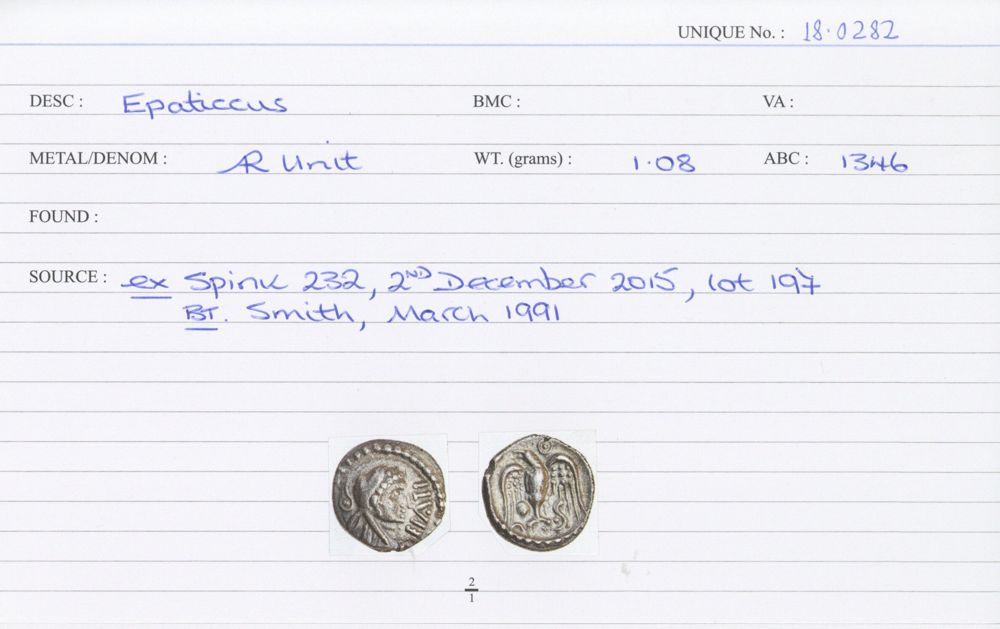 UNIQUE No. : 18·0282
DESC : Epaticcus BMC : VA :
METAL/DENOM : AR Unit WT. (grams) : 1·08 ABC : 1346
FOUND :
SOURCE : ex Spink 232, 2ND December 2015, lot 197
BT. Smith, March 1991
2
1